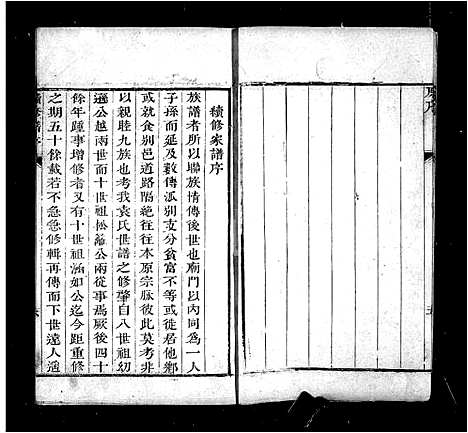 續修家譜序
族譜者所以聯族情傳後世也廟門以內同爲一人
子孫而延及數傳派別支分貧富不等或徙居他鄉
或就食别邑道路隔絶往往本原宗脈彼此莫考非
以親睦九族也考我袁氏世譜之修肇自八世祖幼
遜公越兩世而十世祖松公兩從事焉厥後四十
餘年踵事增修者又有十世祖涵如公迄今距重修
之期五十餘載若不急急修輯再傳而下世遠人湮